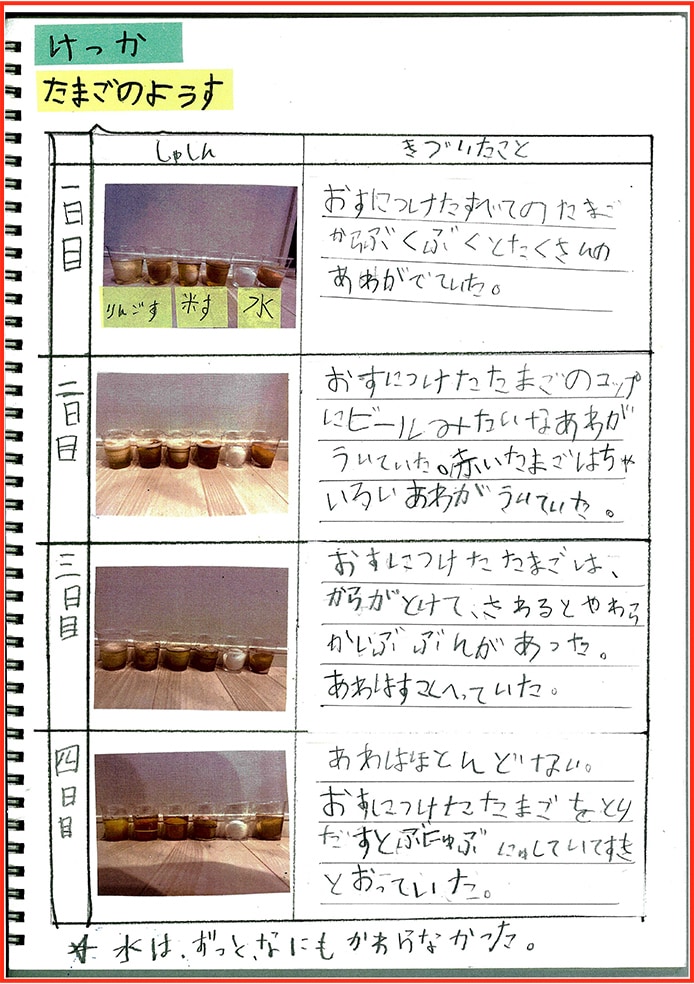 けっか
たまごのようす
しゃしん
きづいたこと
一日目
りんごす
米す
水
おすにつけたすべてのたまご
からぶくぶくとたくさんの
あわがでていた。
二日目
おすにつけたたまごのコップ
にビールみたいなあわが
ういていた。赤いたまごはちゃ
いろいあわがういていた。
三日目
おすにつけたたまごは、
からがとけて、さわるとやわら
かいぶぶんがあった。
あわはすこしへっていた。
四日目
あわはほとんどない。
おすにつけたたまごをとり
だすとぶにゅぶにゅしていてすき
とおっていた。
* 水は、ずっと、なにもかわらなかった。